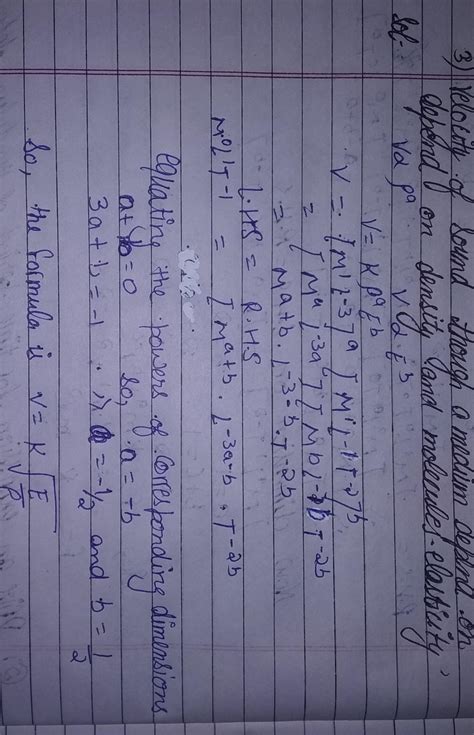 3) Velocity of sound through a medium depend on
depend on density and molecules elasticity,
Sol- V α ρ^a V α E^b
V = K ρ^a E^b
V = [M^1 L^-3]^a [M^1 L^-1 T^-2]^b
= [M^a L^-3a] [M^b L^-b T^-2b
= M^a+b . L^-3-b . T^-2b
L.H.S = R.H.S
M^0 L^1 T^-1 = [M^a+b . L^-3a-b . T^-2b
equating the powers of corresponding dimensions
a+b=0 so, a = -b
3a+b = -1 a = -1/2 and b = 1/2
So, the formula is V = K √E/ρ